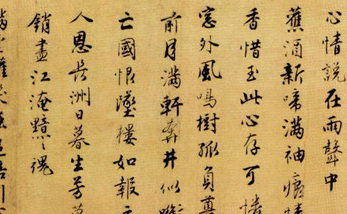 心情說在雨聲中
蕉酒新啼滿袖
香惜玉此心存可
窓外風鳴樹孤負
前月滿軒奔井似
亡國恨墜樓如報
人恩長洲日暮生芳
銷盡江淹黯〻魂